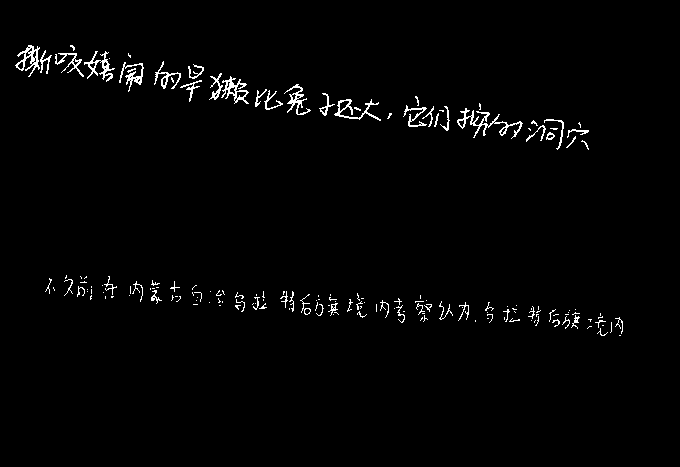 撕咬嬉闹的旱獭比兔子还大，它们挖的洞穴
不久前在内蒙古自治乌拉特后旗境内考察认为，乌拉特后旗境内